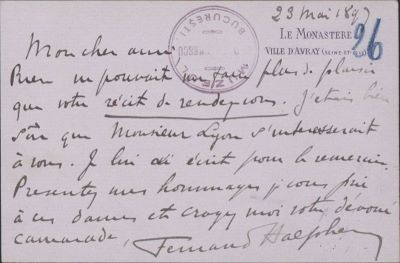 23 Mai 1897
LE MONASTÈRE
VILLE D'AVRAY (SEINE-ET-OISE)
96
BUCUREȘTI
MUZEUL
Mon cher ami
Rien ne pouvait me faire plus de plaisir
que votre récit de rendez vous. J'étais bien
sûr que Monsieur Lyon s'intéresserait
à vous. Je lui ai écrit pour le remercier.
Presentez mes hommages je vous prie
à ces dames et croyez moi votre dévoué
camarade,
Fernand Halphen